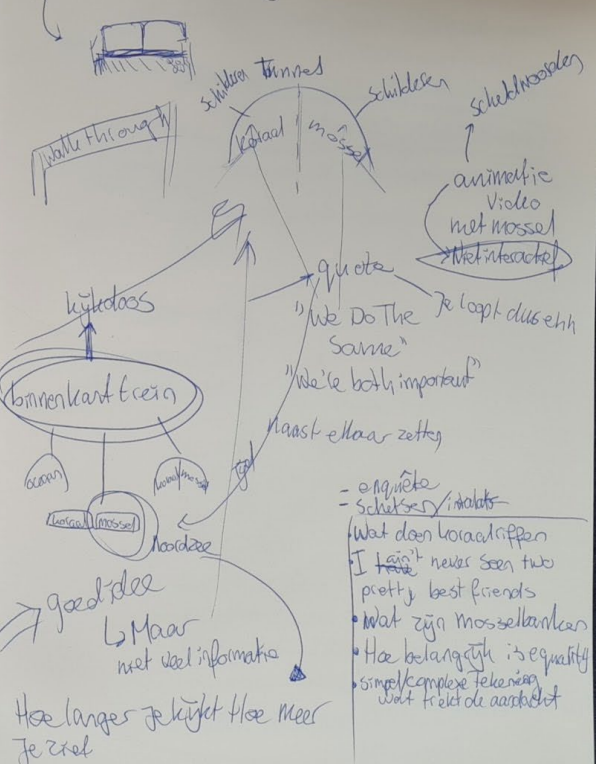 schilderen
tunnel
schilderen
koraal
mossel
Walkthrough
scheldwoorden
animatie
video
met mossel
Niet interactief
quote
Je loopt dus ehh
"We Do The
Same"
"We're both important"
naast elkaar zetten
kijkdoos
binnenkant trein
oceaan
koraal mossel
koraal mossel
Noordzee
goed idee
↳ Maar
niet veel informatie
Hoe langer je kijkt Hoe meer
Je ziet
- enquête
- schetsen/
• Wat doen koraalriffen
• I ain't never seen two
pretty best friends
• Wat zijn mosselbanken
• Hoe belangrijk is equality
• simpel/complexe tekening
wat trekt de aandacht